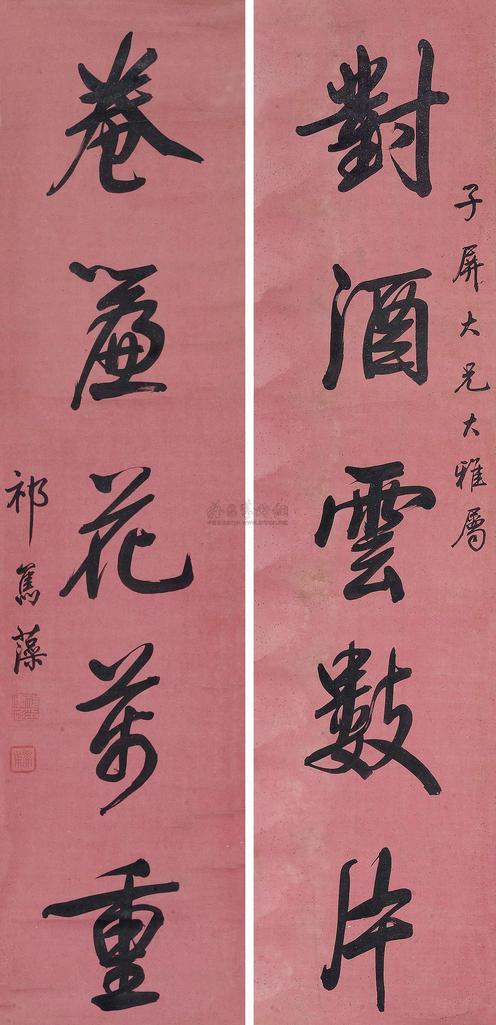 子屏大兄大雅屬
對酒雲數片
卷簾花萬重
祁寯藻